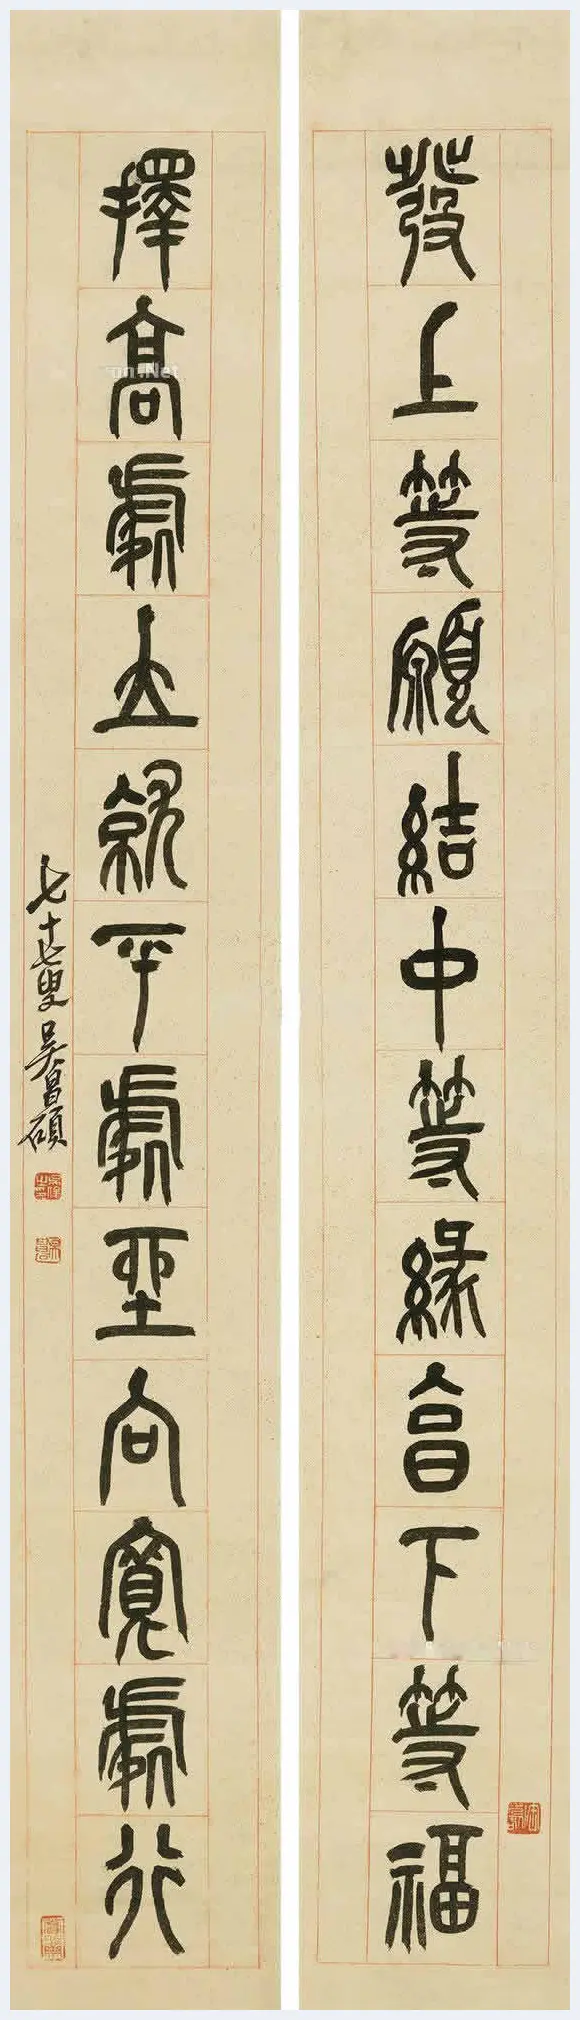 發上等願結中等緣享下等福
擇高處立就平處坐向寬處行
七十七叟吳昌碩